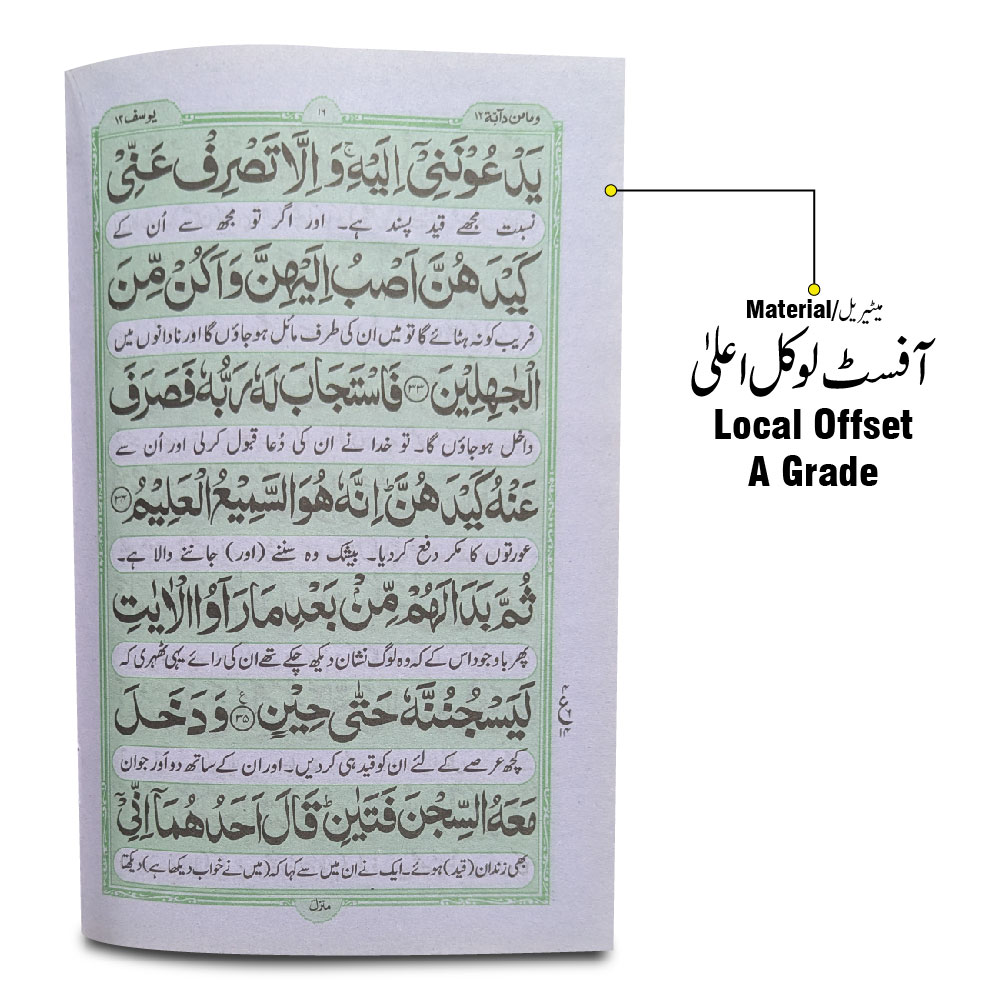 ومامن دآبة ۱۲
۱۶
یوسف ۱۲
يَدْعُوْنَنِيْٓ اِلَيْهِ ۚ وَ اِلَّا تَصْرِفْ عَنِّيْ
نسبت مجھے قید پسند ہے۔ اور اگر تو مجھ سے اُن کے
كَيْدَهُنَّ اَصْبُ اِلَيْهِنَّ وَاَكُنْ مِّنَ
فریب کو نہ ہٹائے گا تو میں ان کی طرف مائل ہوجاؤں گا اور نادانوں میں
الْجٰهِلِيْنَ ۳۳ فَاسْتَجَابَ لَهٗ رَبُّهٗ فَصَرَفَ
داخل ہوجاؤں گا۔ تو خدا نے ان کی دُعا قبول کرلی اور اُن سے
عَنْهُ كَيْدَهُنَّ ؕ اِنَّهٗ هُوَ السَّمِيْعُ الْعَلِيْمُ ۳۴
عورتوں کا مکر دفع کردیا۔ بیشک وہ سننے (اور) جاننے والا ہے۔
ثُمَّ بَدَا لَهُمْ مِّنْۢ بَعْدِ مَا رَاَوُا الْاٰيٰتِ
پھر باوجود اس کے کہ وہ لوگ نشان دیکھ چکے تھے ان کی رائے یہی ٹھہری کہ
لَيَسْجُنُنَّهٗ حَتّٰى حِيْنٍ ۳۵ وَ دَخَلَ
کچھ عرصے کے لئے ان کو قید ہی کردیں۔ اور ان کے ساتھ دو اور جوان
مَعَهُ السِّجْنَ فَتَيٰنِ ؕ قَالَ اَحَدُهُمَآ اِنِّيْٓ
بھی زندان (قید) ہوئے۔ ایک نے ان میں سے کہا کہ (میں نے خواب دیکھا ہے) دیکھتا
منزل
Material/میٹیریل
آفسٹ لوکل اعلیٰ
Local Offset
A Grade